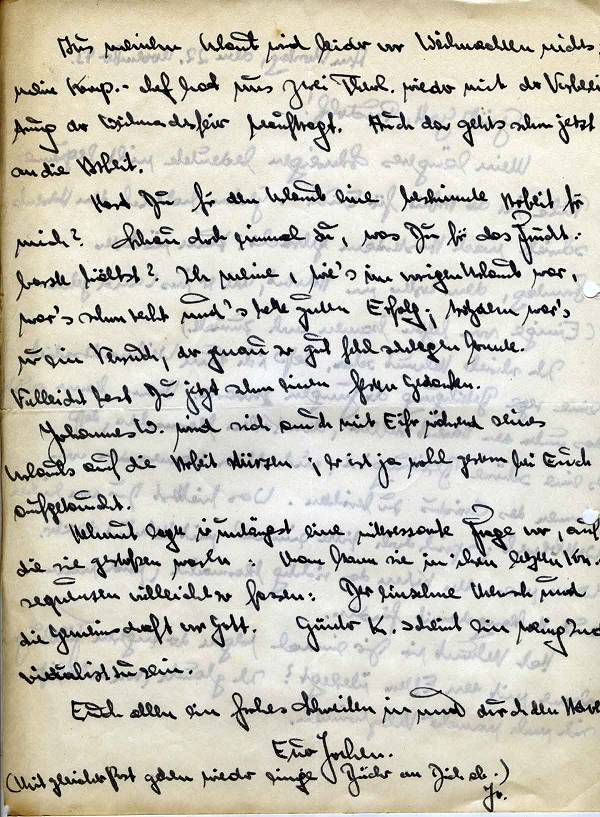 Aus meinem Urlaub wird leider vor Weihnachten nichts,
meine Komp.-chef hat uns zwei Theol. wieder mit der Vorberei
tung der Weihnachtsfeier beauftragt. Auch da gehts schon jetzt
an die Arbeit.
Hast Du für den Urlaub eine bestimmte Arbeit für
mich? Schau doch einmal zu, was Du für das
hältst? Ich meine, wie's im vorigen Urlaub war,
war's schon recht und's hatte guten Erfolg; trotzdem war's
nur ein Versuch, der genau so gut fehl schlagen konnte.
Vielleicht hast Du jetzt schon einen festen Gedanken.
Johannes W. wird sich auch mit Eifer während seines
Urlaubs auf die Arbeit stürzen; er ist ja wohl gestern bei Euch
aufgetaucht.
Helmut legte mir unlängst eine interessante Frage vor, auf
die sie gestoßen waren. Man kann sie in ihren letzten Kon-
sequenzen vielleicht so fassen: Der einzelne Mensch und
die Gemeinschaft vor Gott. Günter K. scheint ein wenig Indi
vidualist zu sein.
Euch allen ein frohes Schreiten in und durch den
Euer Jochen.
(Mit gleicher Post gehen wieder einige Bücher an Dich ab.)
Jo.